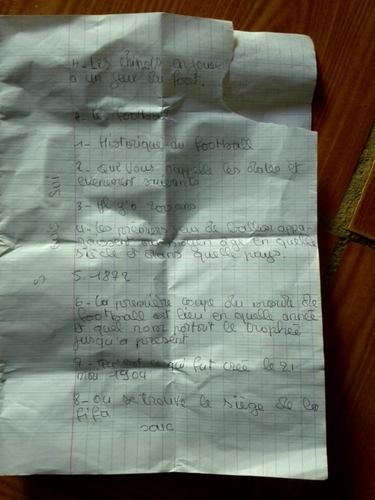 4. Les chinois on joué
à un jeu du foot.
1. le football
1 - Historique du football
2 - que vous rappelle les dates et
evènement suivants
3 - Il y a 2000 ans
4 - Les premiers jeu de ballon appa-
raissent au moyen age en quelle
siècle et dans quelle pays.
5. 1872
6 - La première coupe du monde de
football eut lieu en quelle année
et quel nom portait le trophée
jusqu'à présent
7 - fut créé le 21
mai 1904
8 - Où se trouve le siège de la
fifa